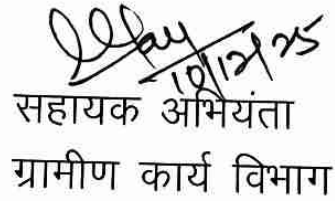 10/12/25
सहायक अभियंता
ग्रामीण कार्य विभाग